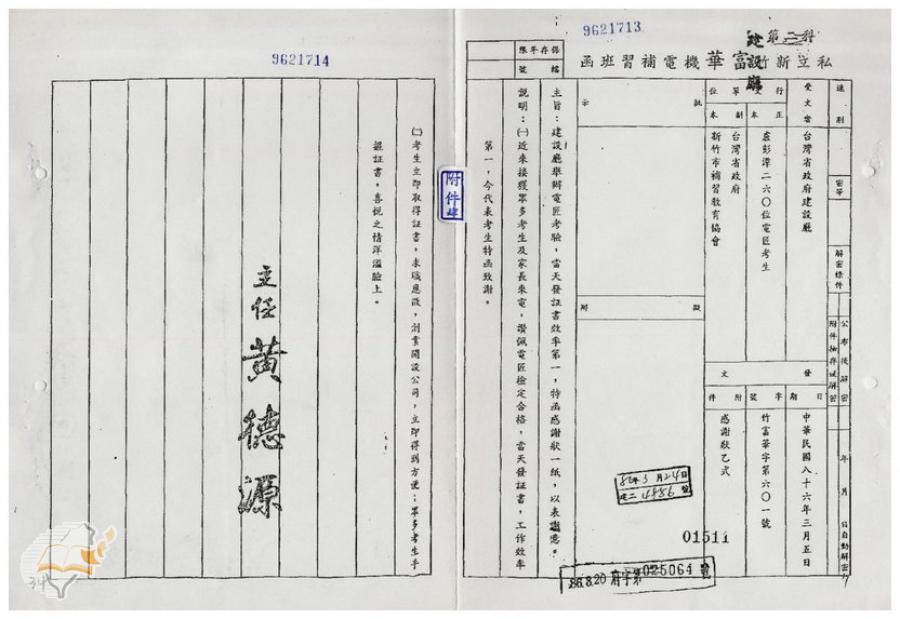 9621713
第二科
建設廳
私立新竹富華機電補習班函
保存年限
檔號
速別
密等
解密條件
公布後解密
附件抽存後解密
年 月 日自動解密
受文者
台灣省政府建設廳
行文單位
正本
彭潭二六〇位電匠考生
副本
台灣省政府
新竹市補習教育協會
發文
日期
中華民國八十六年三月五日
字號
竹富華字第六〇一號
附件
感謝狀乙式
批示
擬辦
主旨：建設廳舉辦電匠考驗，當天發証書效率第一，特函感謝狀一紙，以表謝意。
說明：㈠近來接獲眾多考生及家長來電，讚佩電匠檢定合格，當天發証書，工作效率
第一，今代表考生特函致謝。
86年3月24日
建二 4886 號
01511
86.8.20 府字第025064號
附件肆
9621714
㈡考生立即取得証書，求職應徵，創業開設公司，立即得到方便；眾多考生手
證証書，喜悅之情洋溢臉上。
主任 黃德源
34